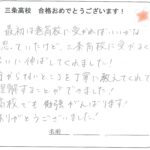 三条高校 合格おめでとうございます！
最初は巻高校に受かればいいかな
思っていたけど、三条高校に受かるく
らいに伸ばしてくれました！
からないところを丁寧に教えてくれて
理解することができました！
高校でも勉強がんばります！
ありがとうございました！
名前